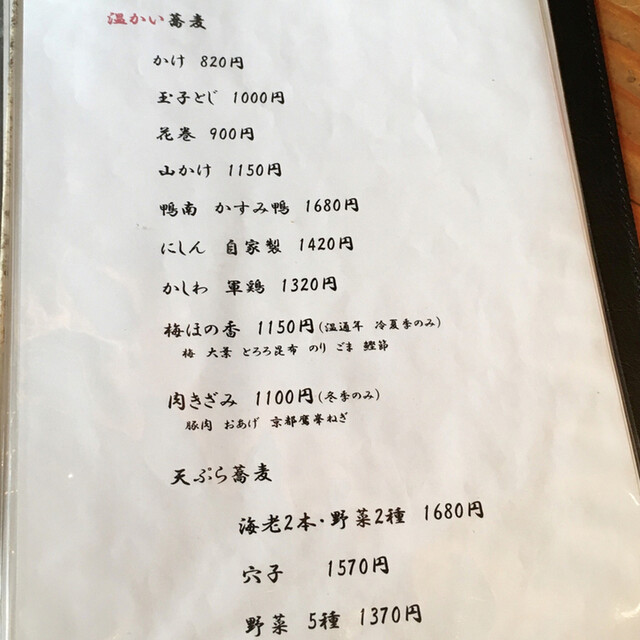 温かい蕎麦
かけ 820円
玉子とじ 1000円
花巻 900円
山かけ 1150円
鴨南 かすみ鴨 1680円
にしん 自家製 1420円
かしわ 軍鶏 1320円
梅ほの香 1150円(温通年 冷夏季のみ)
梅 大葉 とろろ昆布 のり ごま 鰹節
肉きざみ 1100円(冬季のみ)
豚肉 おあげ 京都鷹峯ねぎ
天ぷら蕎麦
海老2本・野菜2種 1680円
穴子 1570円
野菜 5種 1370円